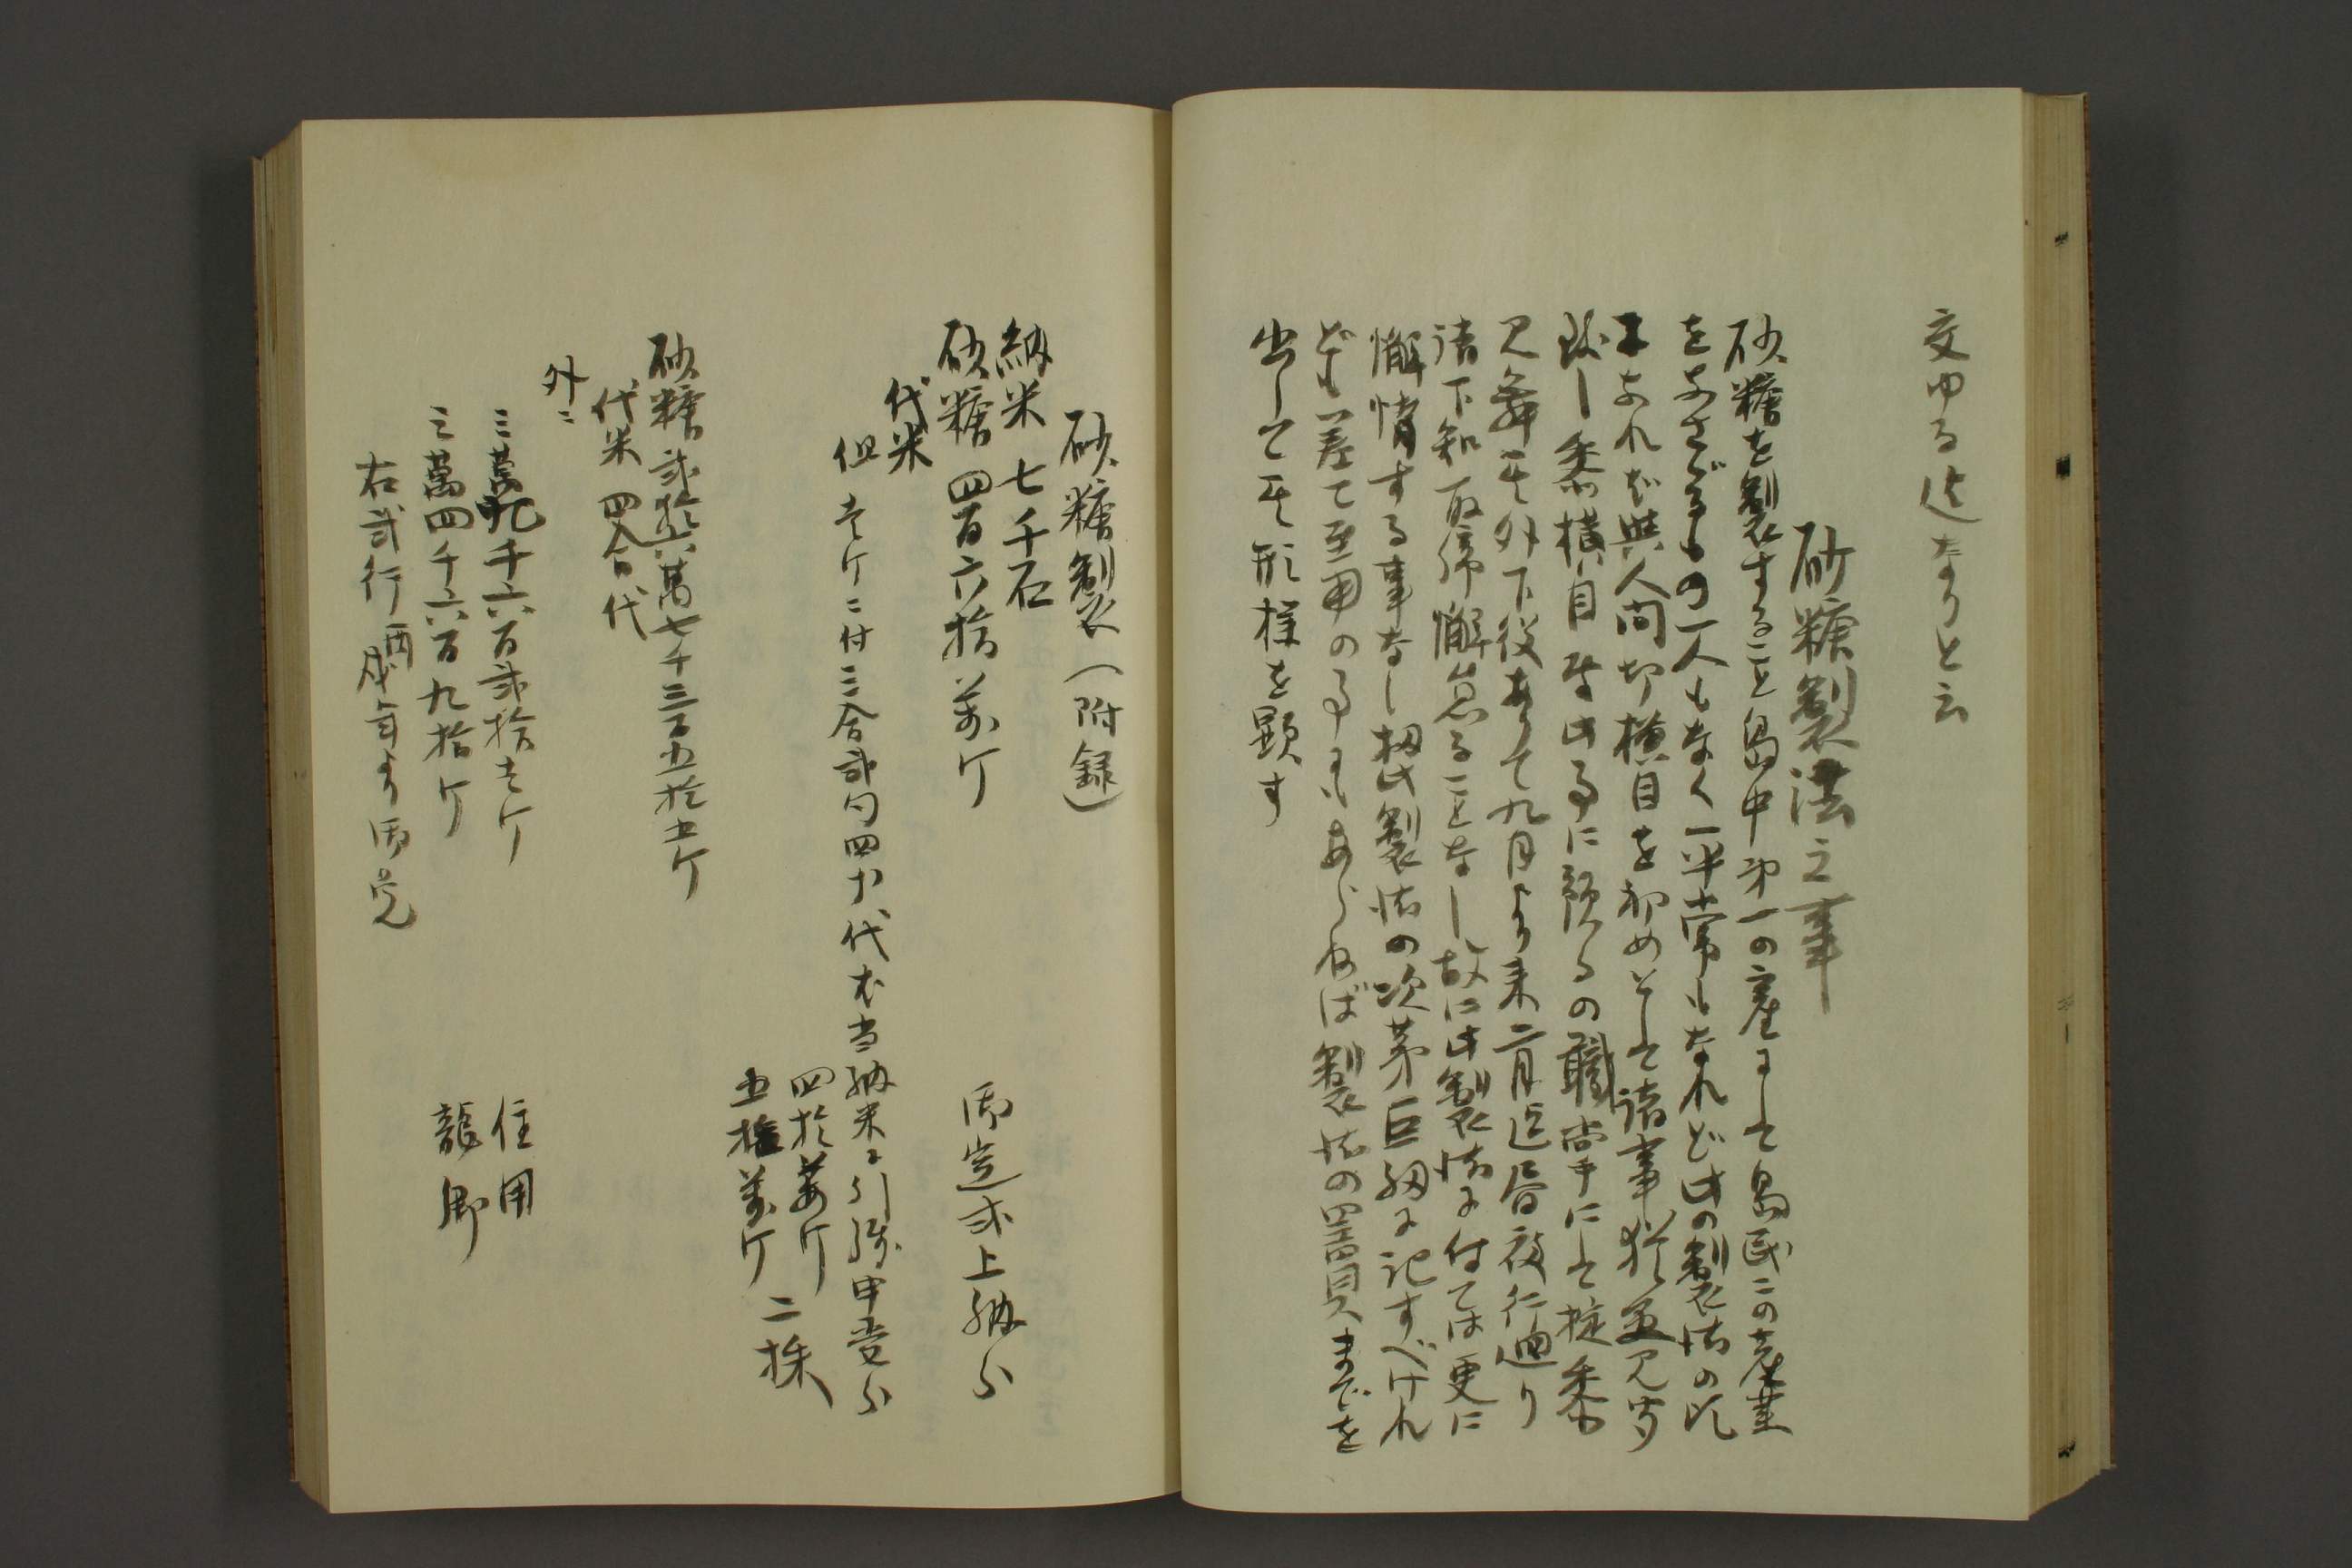 交ゆる迄なりと云
砂糖製法之事
砂糖を製すること島中第一の産にして島民この産業
をなさゞるもの一人もなく平常もなれど此の製法の比
になれば與人間切横目を初めとして諸事猶更見守
黍横目等此事に預るの職掌にして掟黍
見舞其外下役ありて九月より来二月迄昼夜行廻り
諸下知取締懈怠ることなし故に此製法に付ては更に
懈惰する事なし扨此製法の次第巨細に記すべけれ
ども差て至用の事にもあらねば製法の器具までを
出して其形様を顕す
砂糖製（附録）
納米七千石
砂糖四百六拾萬斤 御定式上納分
代米
但壱斤ニ付三合弐勺四才代本当納米ニ引 申受分
四拾萬斤
五拾萬斤 二株
砂糖弐拾六萬七千三百五拾五斤
代米四合代
外ニ
三萬九千六百弐拾壱斤 住用
三萬四千六百九拾斤 龍郷
右弐行酉戌年より御免